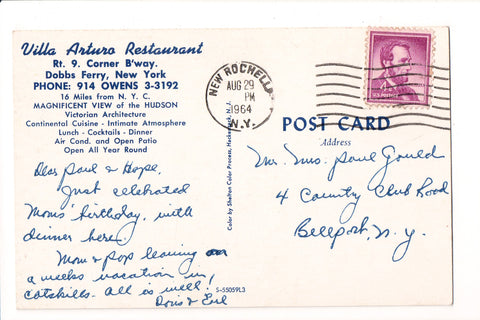 Villa Arturo Restaurant
Rt. 9. Corner B'way.
Dobbs Ferry, New York
PHONE: 914 OWENS 3-3192
16 Miles from N. Y. C.
MAGNIFICENT VIEW of the HUDSON
Victorian Architecture
Continental Cuisine - Intimate Atmosphere
Lunch - Cocktails - Dinner
Air Cond. and Open Patio
Open All Year Round
Dear Paul & Hope,
Just celebrated
Mom's birthday, with
dinner here.
Mom & pop leaving on
a weeks vacation in
Catskills. All is well!
Doris & Earl
S-55059L3
Color by Shelton Color Process, Hackensack, N. J.
NEW ROCHELLE
AUG 29
PM
1964
N.Y.
POST CARD
Address
Mr. Mrs. Paul Gould
4 Country Club Road
Bellport, N. Y.